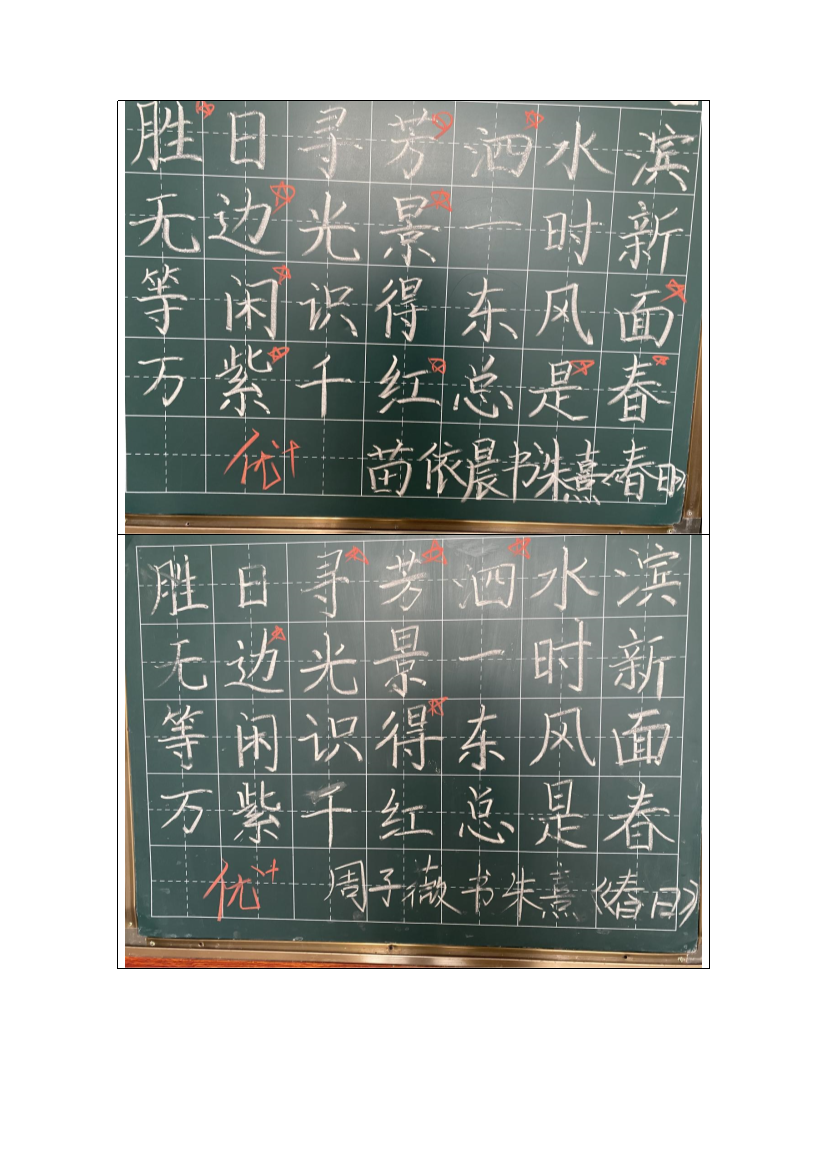 胜日寻芳泗水滨
无边光景一时新
等闲识得东风面
万紫千红总是春
优+ 苗依晨书朱熹《春日》
胜日寻芳泗水滨
无边光景一时新
等闲识得东风面
万紫千红总是春
优+ 周子薇书朱熹《春日》